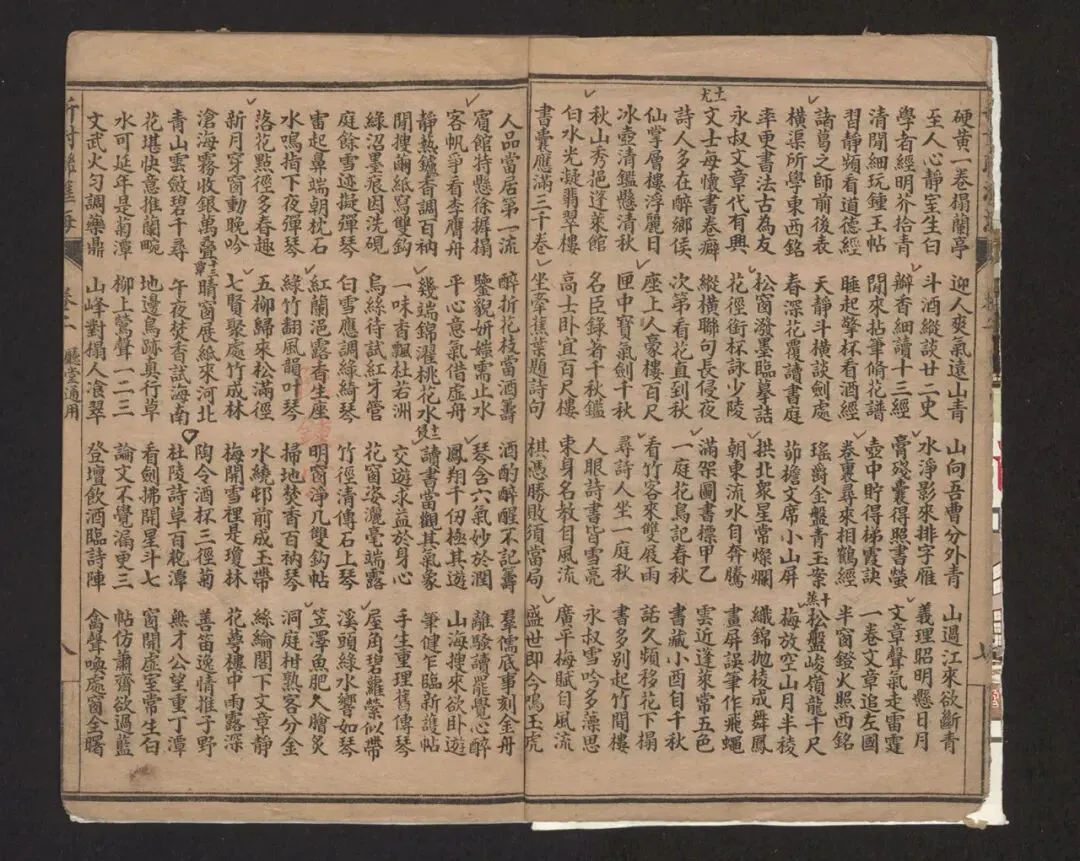 硬黃一卷榻蘭亭
至人心靜室生白
學者經明芥拾青
清閒細玩鍾王帖
習靜頻看道德經
諸葛之師前後表
橫渠所學東西銘
率更書法古為友
永叔文章代有興
十一尤
文士每懷書卷癖
詩人多在醉鄉侯
仙掌層樓浮麗日
冰壺清鑑懸清秋
秋山秀挹蓬萊館
白水光凝翡翠樓
書囊應滿三千卷
迎人爽氣遠山青
斗酒縱談廿二史
瓣香細讀十三經
閒來拈筆脩花譜
睡起擎杯看酒經
天靜斗橫談劍處
春深花覆讀書庭
松窗潑墨臨摹詰
花徑銜杯詠少陵
縱橫聯句長侵夜
次第看花直到秋
座上人豪樓百尺
匣中寶氣劍千秋
名臣錄著千秋鑑
高士臥宜百尺樓
坐牽蕉葉題詩句
山向吾曹分外青
水淨影來排字雁
膏殘囊得照書螢
壺中貯得梯霞訣
卷裏尋來相鶴經
瑤爵金盤青玉案
茆檐文席小山屏
拱北衆星常燦爛
朝東流水自奔騰
滿架圖書標甲乙
一庭花鳥記春秋
看竹客來雙展雨
尋詩人坐一庭秋
人眼詩書皆雪亮
束身名教自風流
棋憑勝敗須當局
山過江來欲斷青
義理昭明懸日月
文章聲氣走雷霆
一卷文章追左國
半窗鐙火照西銘
十蒸
松盤峻嶺龍千尺
梅放空山月半稜
織錦拋梭成舞鳳
畫屏誤筆作飛蠅
雲近蓬萊常五色
書藏小酉自千秋
話久頻移花下榻
書多別起竹間樓
永叔雪吟多藻思
廣平梅賦自風流
盛世即今鳴玉虎
人品當居第一流
賓館特懸徐穉榻
客帆爭看李膺舟
靜熱鑪香調百衲
閒搜繭紙寫雙鈎
綠沼墨痕因洗硯
庭餘雪迹擬彈琴
雷起鼻端朝枕石
水鳴指下夜彈琴
落花點徑多春趣
新月穿窗動晚吟
滄海霧收銀萬疊
青山雲斂碧千尋
花堪快意推蘭畹
水可延年是菊潭
文武火勻調藥鼎
醉折花枝當酒籌
鑒貌妍媸需止水
平心意氣借虛舟
幾端錦濯桃花水
一味香飄杜若洲
烏絲待試紅牙管
白雪應調綠綺琴
紅蘭浥露香生座
綠竹翻風韻叶琴
五柳歸來松滿徑
七賢聚處竹成林
晴窗展紙來河北
午夜焚香試海南
地邊鳥跡真行草
柳上鶯聲一二三
山峰對榻人飡翠
酒酌醉醒不記籌
琴含六氣妙於潤
鳳翔千仞極其遊
十二侵
讀書當觀其氣象
交遊求益於身心
花窗姿灑毫端露
竹徑清傳石上琴
明窗淨几雙鈎帖
掃地焚香百衲琴
水繞邨前成玉帶
梅開雪裡是瓊林
陶令酒杯三徑菊
杜陵詩草百花潭
看劍拂開星斗七
論文不覺漏更三
登壇飲酒臨詩陣
羣儒底事刻金舟
離騷讀罷覺心醉
山海搜來欲臥遊
筆健乍臨新護帖
手生重理舊傳琴
屋角碧蘿縈似帶
溪頭綠水響如琴
笠澤魚肥久膾炙
洞庭柑熟客分金
絲綸閣下文章靜
花萼樓中雨露深
善笛逸情推子野
無才公望重丁潭
窗開虛室常生白
帖仿蕭齋欲過藍
禽聲喚處窗全曙
卷二
廳堂通用
八